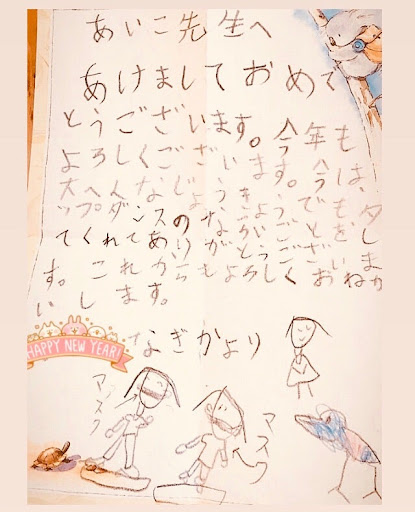 あいこ先生へ
あけましておめで
とうございます。今年も
よろしくございます。
大へんなじょうきょうでも
ップダンスの
てくれてありがとうございま
す。これからもよろしくおねが
いします。
HAPPY NEW YEAR!
なぎかより
マスク
マスク